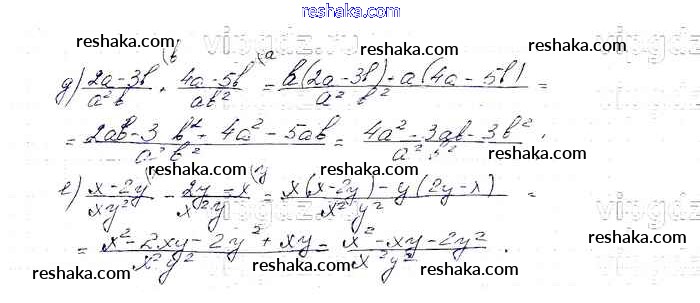 reshaka.com
reshaka.com reshaka.com reshaka.com
д) (2a-3b)/(a²b) + (4a-5b)/(ab²) = (b(2a-3b)+a(4a-5b))/(a² b²) =
= (2ab-3b²+4a²-5ab)/(a²b²) = (4a²-3ab-3b²)/(a²b²).
reshaka.com reshaka.com reshaka.com
е) (x-2y)/(xy²) - (2y-x)/(x²y) = (x(x-2y)-y(2y-x))/(x²y²) =
= (x²-2xy-2y²+xy)/(x²y²) = (x²-xy-2y²)/(x²y²).
reshaka.com reshaka.com reshaka.com
reshaka.com